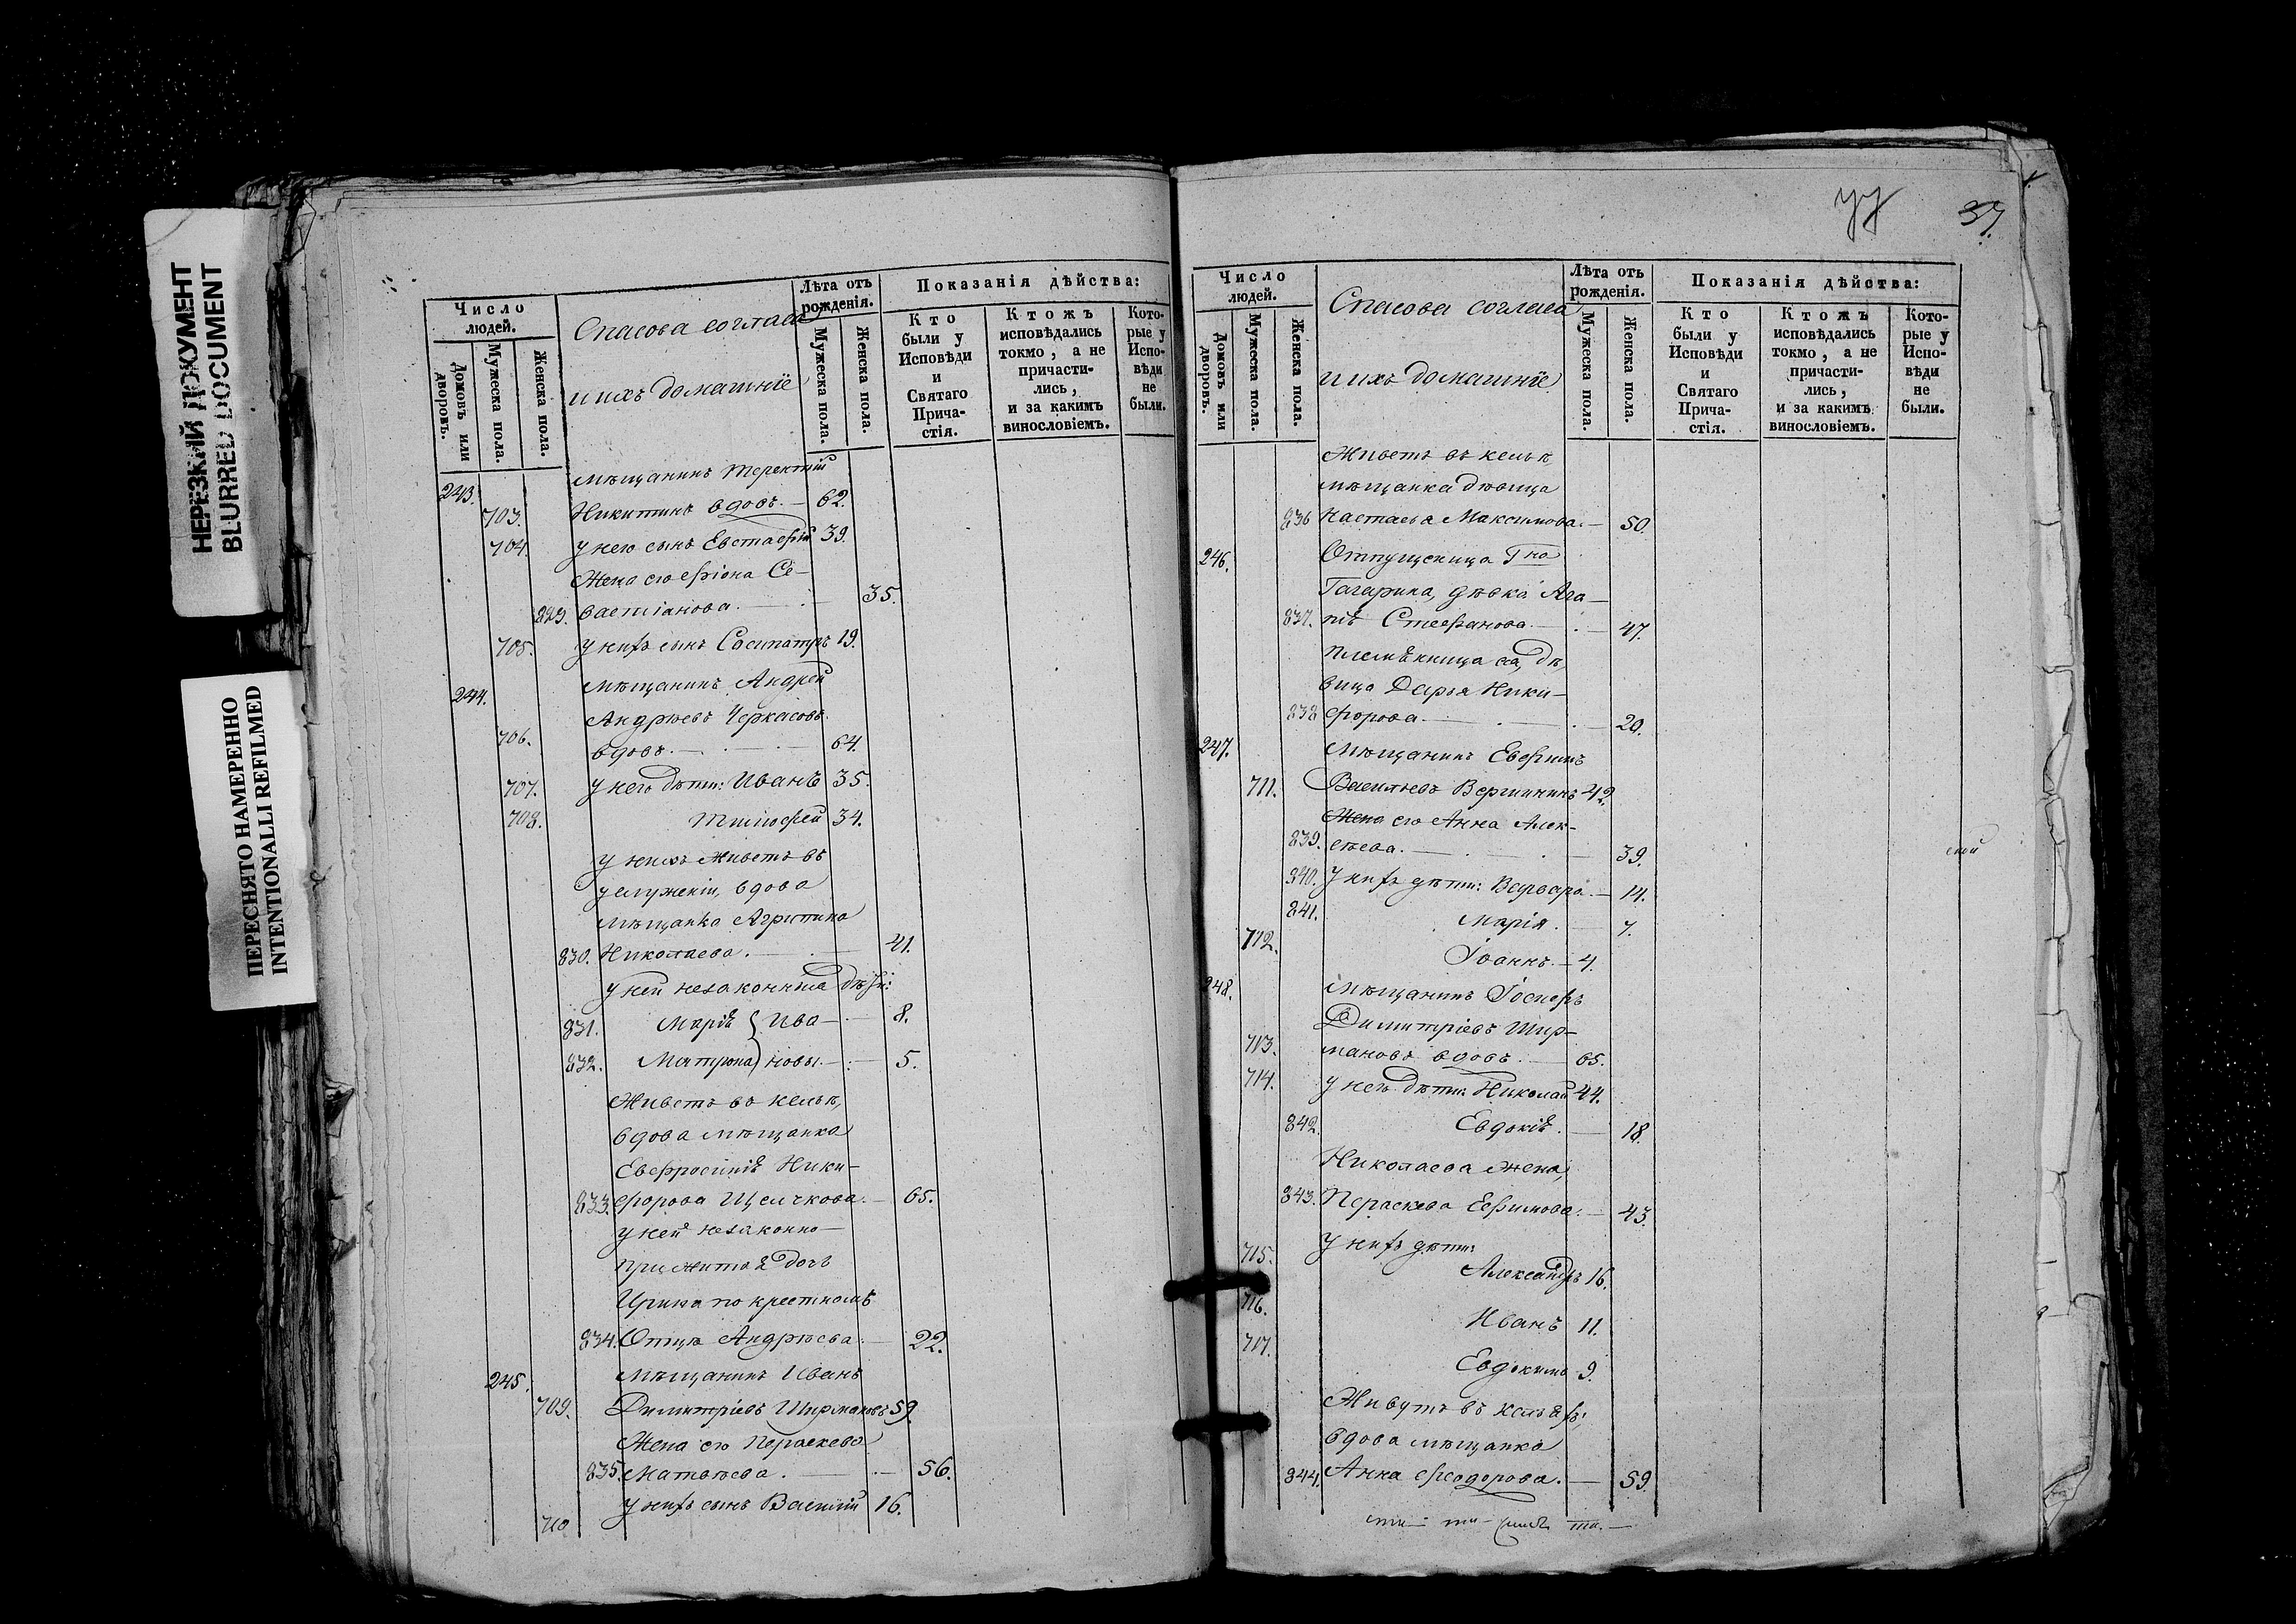 НЕРЕЗКИЙ ДОКУМЕНТ
BLURRED DOCUMENT
ПЕРЕСНЯТО НАМЕРЕННО
INTENTIONALLI REFILMED
Число людей.
Домовъ или дворовъ.
Мужеска пола.
Женска пола.
Спасова согласа
и ихъ домашніе
Лѣта отъ рожденія.
Мужеска пола.
Женска пола.
Показанія дѣйства:
Кто были у Исповѣди и Святаго Прича-стія.
Ктожъ исповѣдались токмо, а не причасти-лись, и за какимъ винословіемъ.
Кото-рые у Испо-вѣди не были.
243. мѣщанинъ Терентій
703. Никитинъ вдовъ. — 62.
704. у него сынъ Евстафій 39.
Жена его Фіона Се-
829. вастіанова. — 35.
705. у нихъ сынъ Сосипатръ 19.
244. мѣщанинъ Андрей
Андрѣевъ Черкасовъ
706. вдовъ. — 64.
707. у него дѣти: Иванъ 35.
708. Тимофей 34.
у нихъ живетъ въ
услуженіи, вдова
мѣщанка Агрипина
830. Николаева. — 41.
у ней незаконныя дѣти:
831. Марія } Ива- — 8.
832. Матрона } новы. — 5.
Живетъ въ кельѣ,
вдова мѣщанка
Евфросинія Ники-
833. форова Щелчкова. — 65.
у ней незаконно-
прижитая дочь
Ирина по крестному
834. Отцу Андрѣева. — 22.
245. мѣщанинъ Иванъ
709. Димитріевъ Ширмановъ 59.
Жена его Параскева
835. Матвѣева. — 56.
710 у нихъ сынъ Василій 16.
37.
Число людей.
Домовъ или дворовъ.
Мужеска пола.
Женска пола.
Спасова согласа
и ихъ домашніе
Лѣта отъ рожденія.
Мужеска пола.
Женска пола.
Показанія дѣйства:
Кто были у Исповѣди и Святаго Прича-стія.
Ктожъ исповѣдались токмо, а не причасти-лись, и за какимъ винословіемъ.
Кото-рые у Испо-вѣди не были.
Живетъ въ кельѣ,
мѣщанка дѣвица
836 Настасья Максимова. — 50.
246. Отпущеница Гна
Гагарина, дѣвка Ага-
837. пія Стефанова. — 47.
племянница ея, дѣ-
вица Дарья Ники-
838 форова. — 20.
247. Мѣщанинъ Евфимъ
711. Васильевъ Вершининъ 42.
Жена его Анна Алек-
839. сѣева. — 39.
840. У нихъ дѣти: Варвара. — 14.
841. Марія. — 7.
712. Іоаннъ. — 4.
248. Мѣщанинъ Іосифъ
Димитріевъ Шир-
713. мановъ вдовъ. — 65.
714. у него дѣти: Николай 44.
842. Евдокія. — 18.
Николаева жена,
843. Параскева Ефимова. — 43.
У нихъ дѣти:
715. Александръ 16.
716. Иванъ 11.
717. Евдокимъ 9.
Живутъ въ кельяхъ:
вдова мѣщанка
844. Анна Феодорова. — 59.